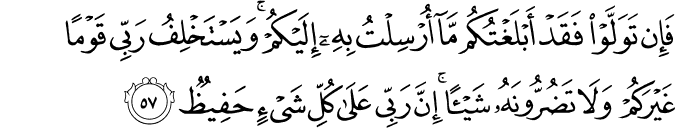 فَإِن تَوَلَّوْا۟ فَقَدْ أَبْلَغْتُكُم مَّآ أُرْسِلْتُ بِهِۦٓ إِلَيْكُمْ ۚ وَيَسْتَخْلِفُ رَبِّى قَوْمًا
غَيْرَكُمْ وَلَا تَضُرُّونَهُۥ شَيْـًٔا ۚ إِنَّ رَبِّى عَلَىٰ كُلِّ شَىْءٍ حَفِيظٌ ۝٥٧